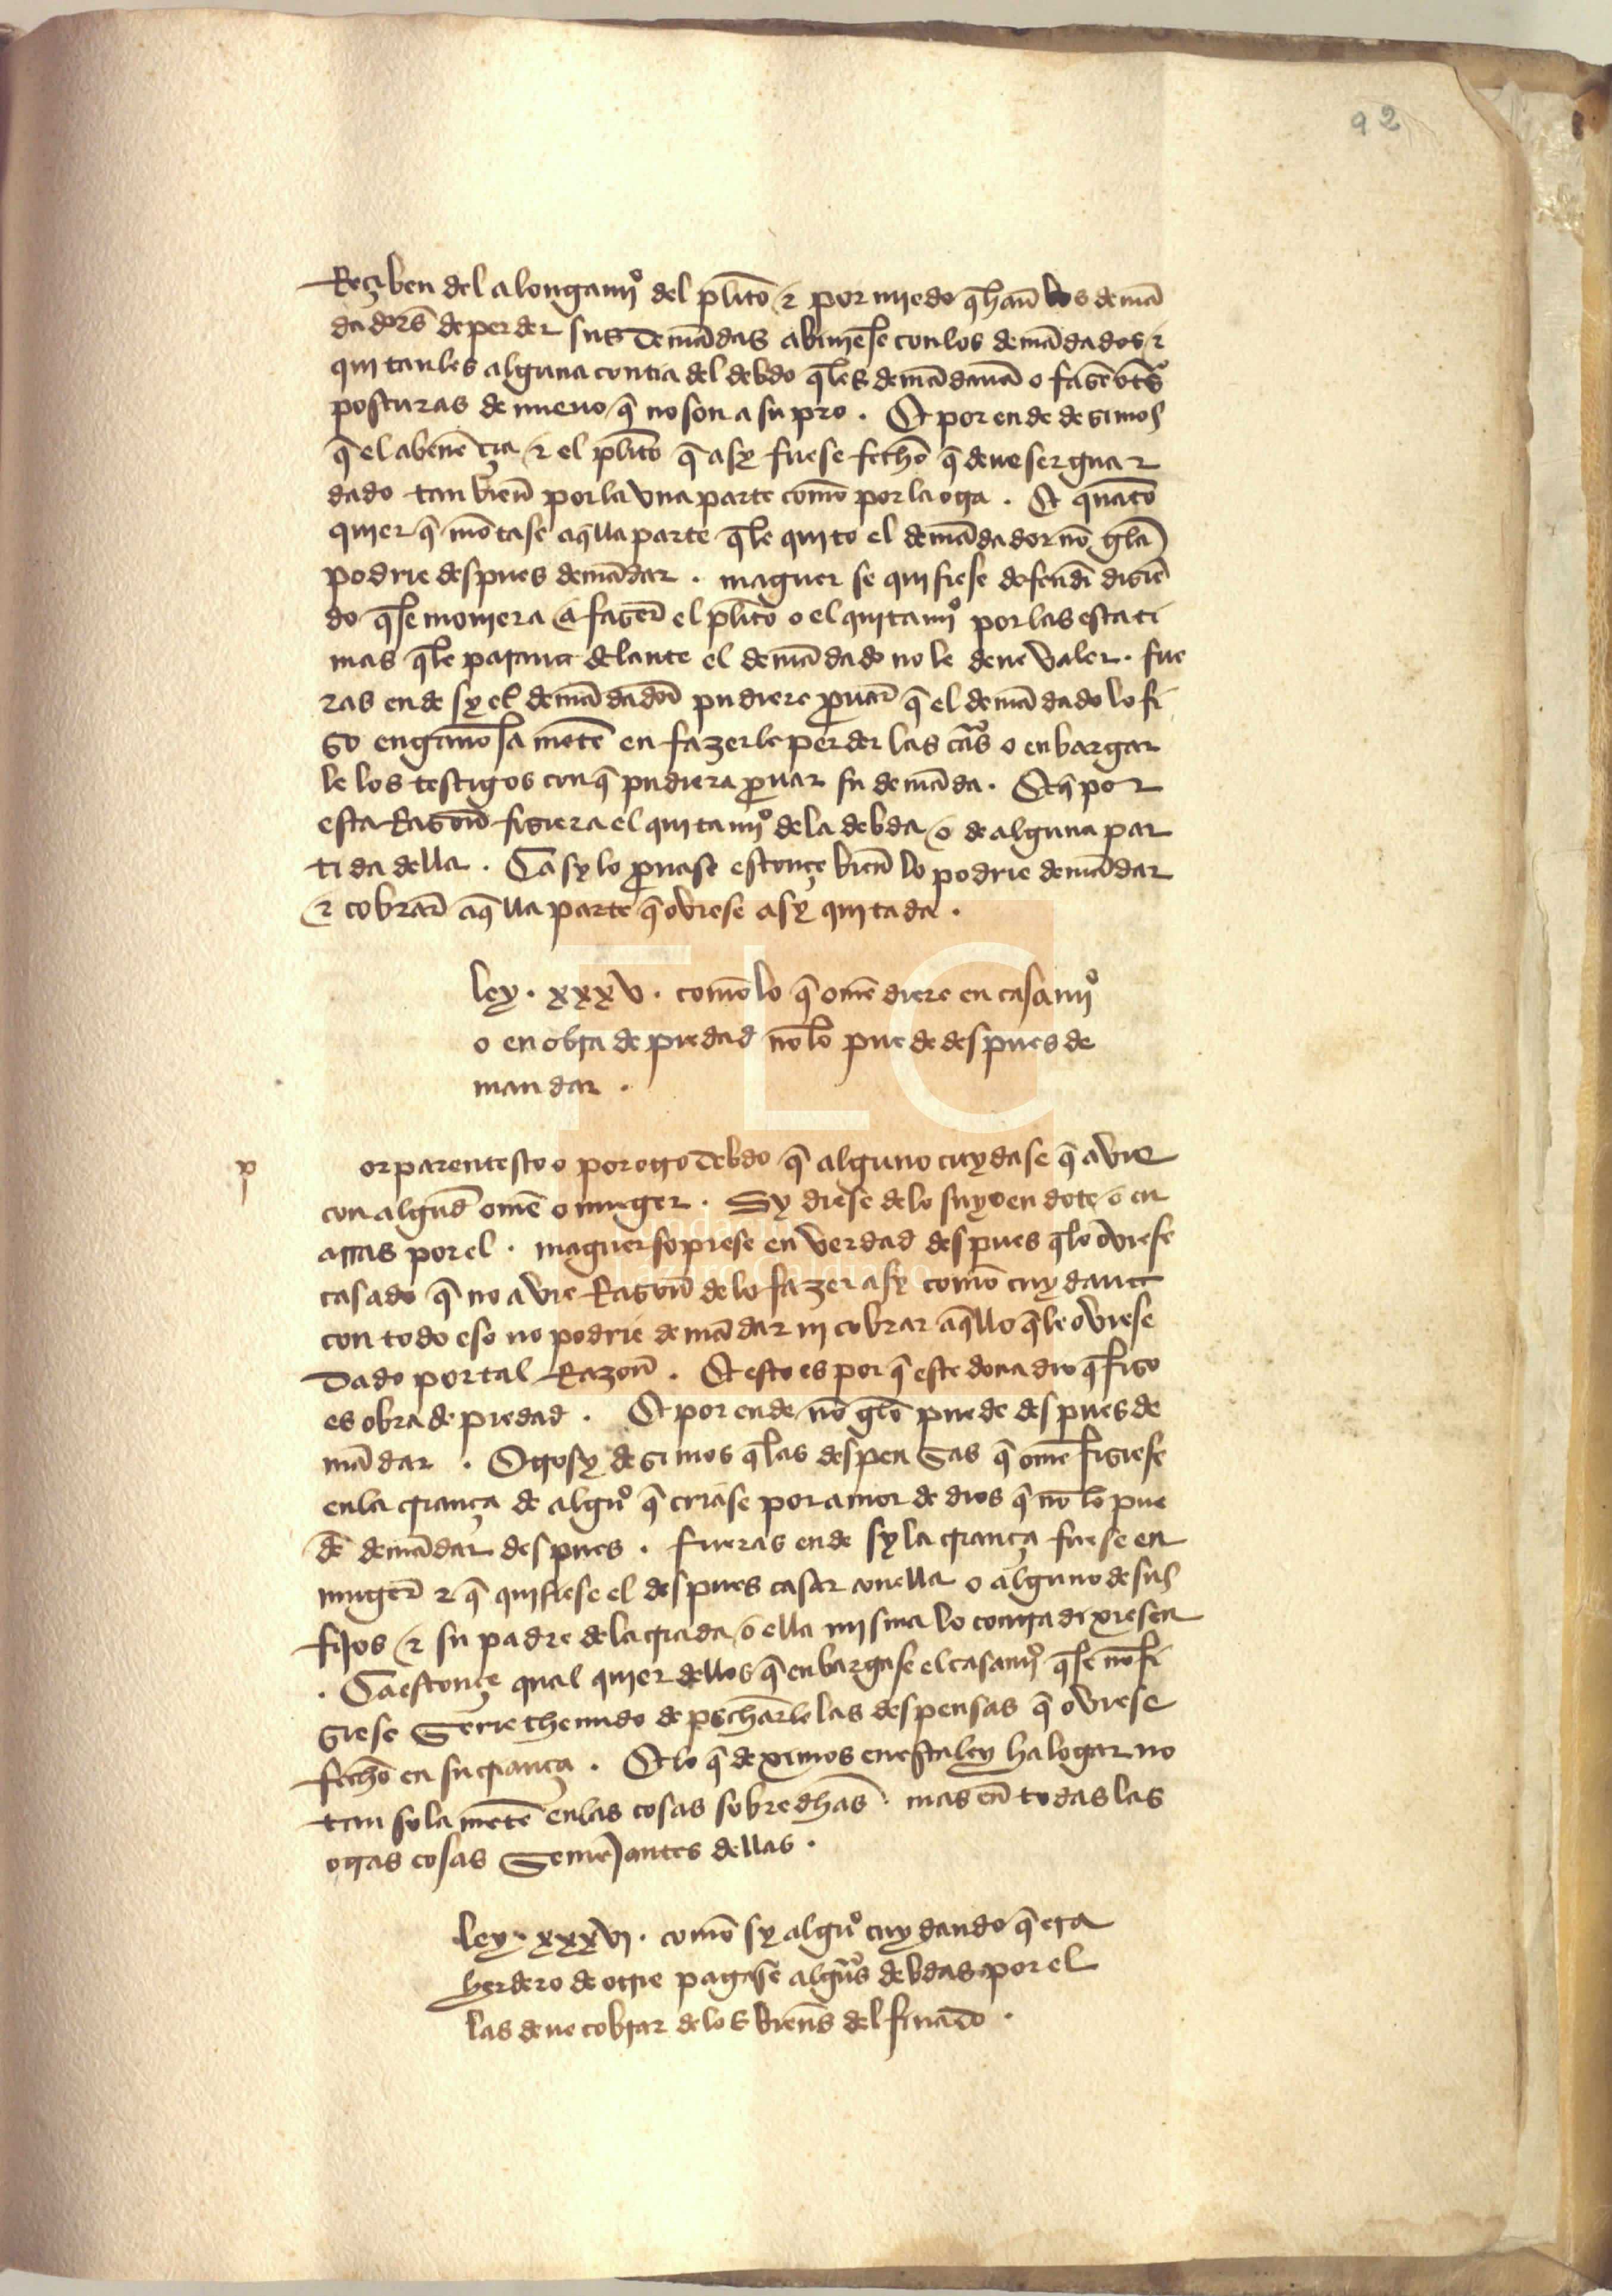 92
Reçiben del alongamjº del plito τ por miedo q̃ han los demã
dadores de perder sus demãdas abienẽse con los demãdados τ
quitanles alguna contia del debdo q̃les demãdauã o fazẽ otrͣs
posturas de nueuo q̃ no son a su pro . Et por ende dezimos
q̃ el abenẽçia τ el plito q̃ asy fuese fecho q̃ deue ser guar
dado tan bien por la vna parte como por la otra . Et quãto
quier q̃ mõtase aq̃lla parte q̃le quito el demãdador nõ gela
podrie despues demãdar . maguer se quisiese defendr̃ diziẽ
do q̃se mouiera a fazer el plito o el quitamjº por las escati
mas q̃le paraua delante el demãdado no le deue valer . fue
ras ende sy el demãdador pudiere prouar q̃ el demãdado lo fi
zo engañosa mẽte en fazerle perder las cartas o enbargar
le los testigos con q̃ pudiera prouar su demãda . Et q̃ por
esta Razon fiziera el quitamjº dela debda o de alguna par
tida della . Ca sy lo prouase estonçe bien lo podrie demãdar
τ cobrar aq̃lla parte q̃ oviese asy quitada .
ley . xxxv . como lo q̃ ome diere en casamjº
o en obra de piedad nõ lo puede despues de
mandar .
p
or parentesco o por otro debdo q̃ alguno cuydase q̃ avie
con algud ome o muger . Sy diese delo suyo en dote o en
arras por el . maguer sopiese en verdad despues q̃lo oviese
casado q̃ no avie Razon delo fazer asy como cuydaua
con todo eso no podrie demãdar nj cobrar aq̃llo q̃le oviese
dado por tal Razon . Et esto es por q̃ este donadio q̃ fizo
es obra de piedad . Et por ende nõ gelo puede despues de
mãdar . Otrosy dezimos q̃las despensas q̃ ome fiziese
en la criança de algũº q̃ criase por amor de dios q̃ nõ lo pue
de demãdar despues . fueras ende sy la criança fuese en
muger τ q̃ quisiese el despues casar conella o alguno de sus
fijos τ su padre dela criada o ella misma lo contradixiesen
. Ca estonçe qual quier dellos q̃ enbargase el casamjº q̃se nõ fi
ziese serie thenudo de pecharle las despensas q̃ oviese
fecho en su criança . Et lo q̃ deximos en esta ley ha logar no
tan sola mẽte en las cosas sobredhas . mas en todas las
otras cosas semejantes dellas .
ley . xxxvj . como sy algũº cuydando q̃ era
herdero de otrie pagase algũͣs debdas por el
las deue cobrar delos bienes del finado .